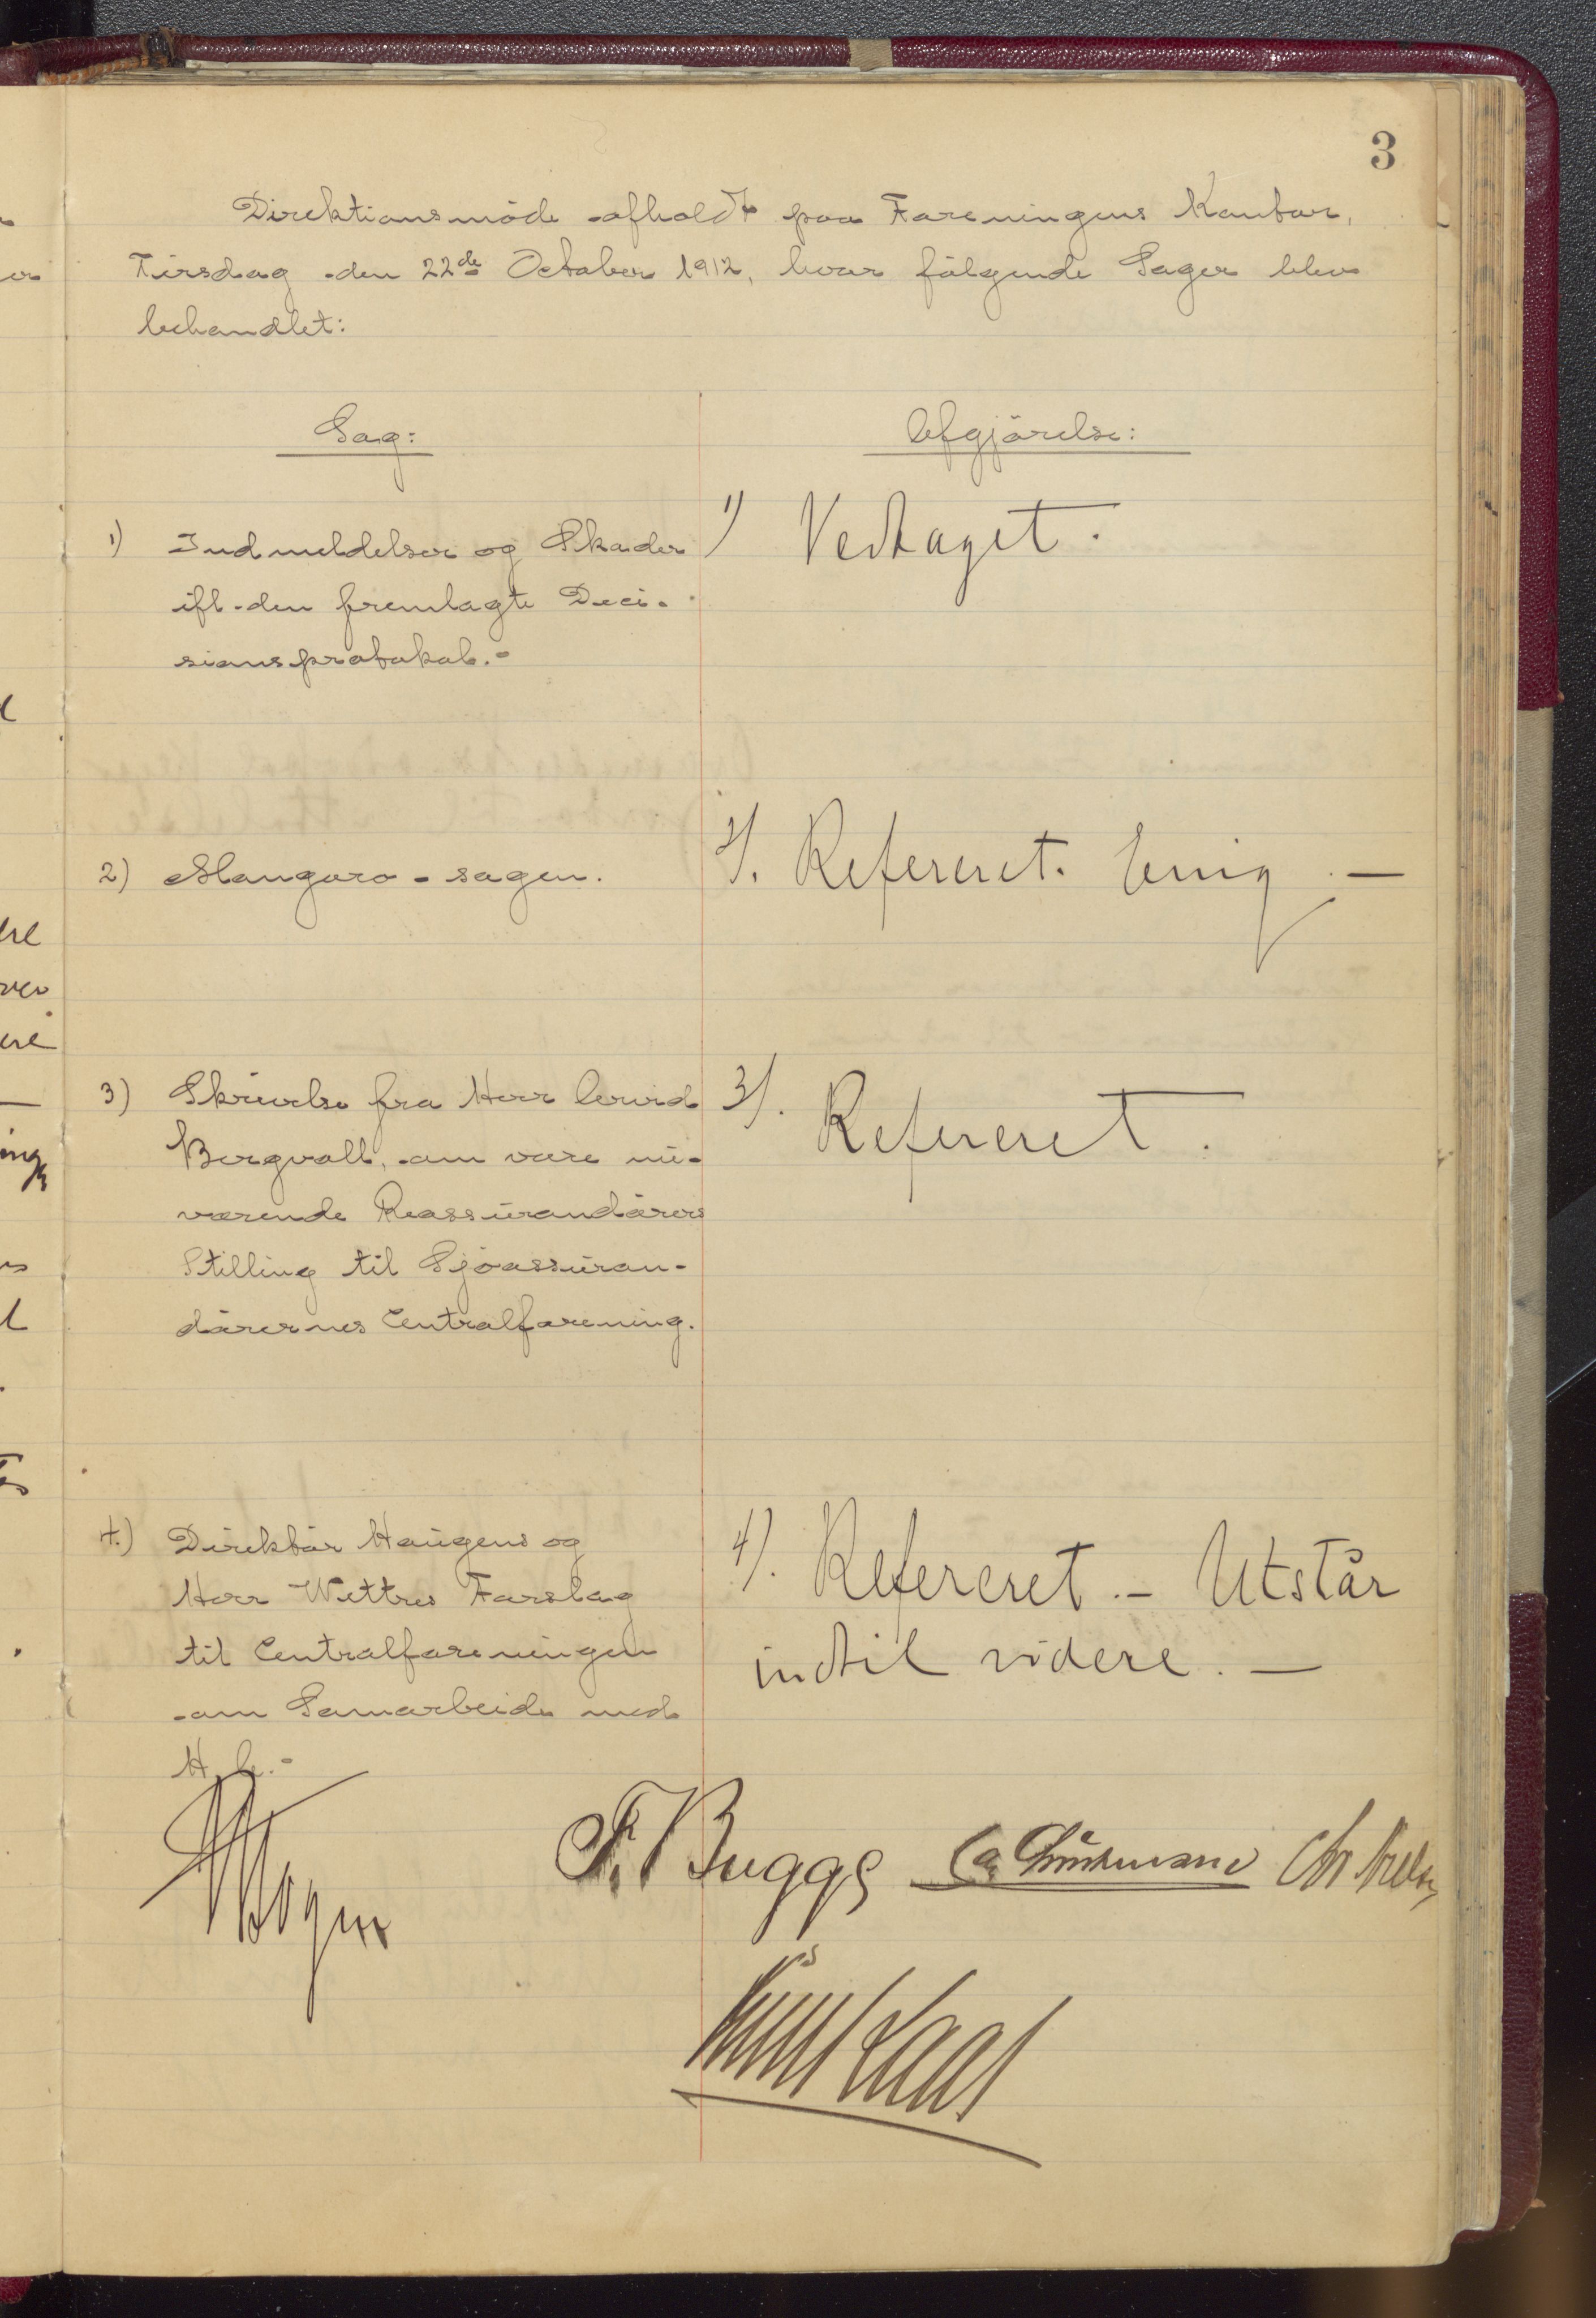 3
Direktionsmöde afholdt paa Foreningens Kontor,
Tirsdag den 22de October 1912, hvor fölgende Sager blev
behandlet:
Sag:
Afgjörelse:
1) Indmeldelser og Skader
ifl. den fremlagte Deci-
sionsprotokol.-
1) Vedtaget.
2) -sagen.
2/. Refereret. Enig. —
3) Skrivelse fra Herr Arvid
Bergvall, om vore nu-
værende Reassurandörers
Stilling til Sjöassuran-
dörernes Centralforening.
3/. Refereret.
4.) Direktör Haugens og
Herr Wettres Forslag
til Centralforeningen
om Samarbeide med
4/. Refereret. - Utstår
indtil videre. —
F. Bugge